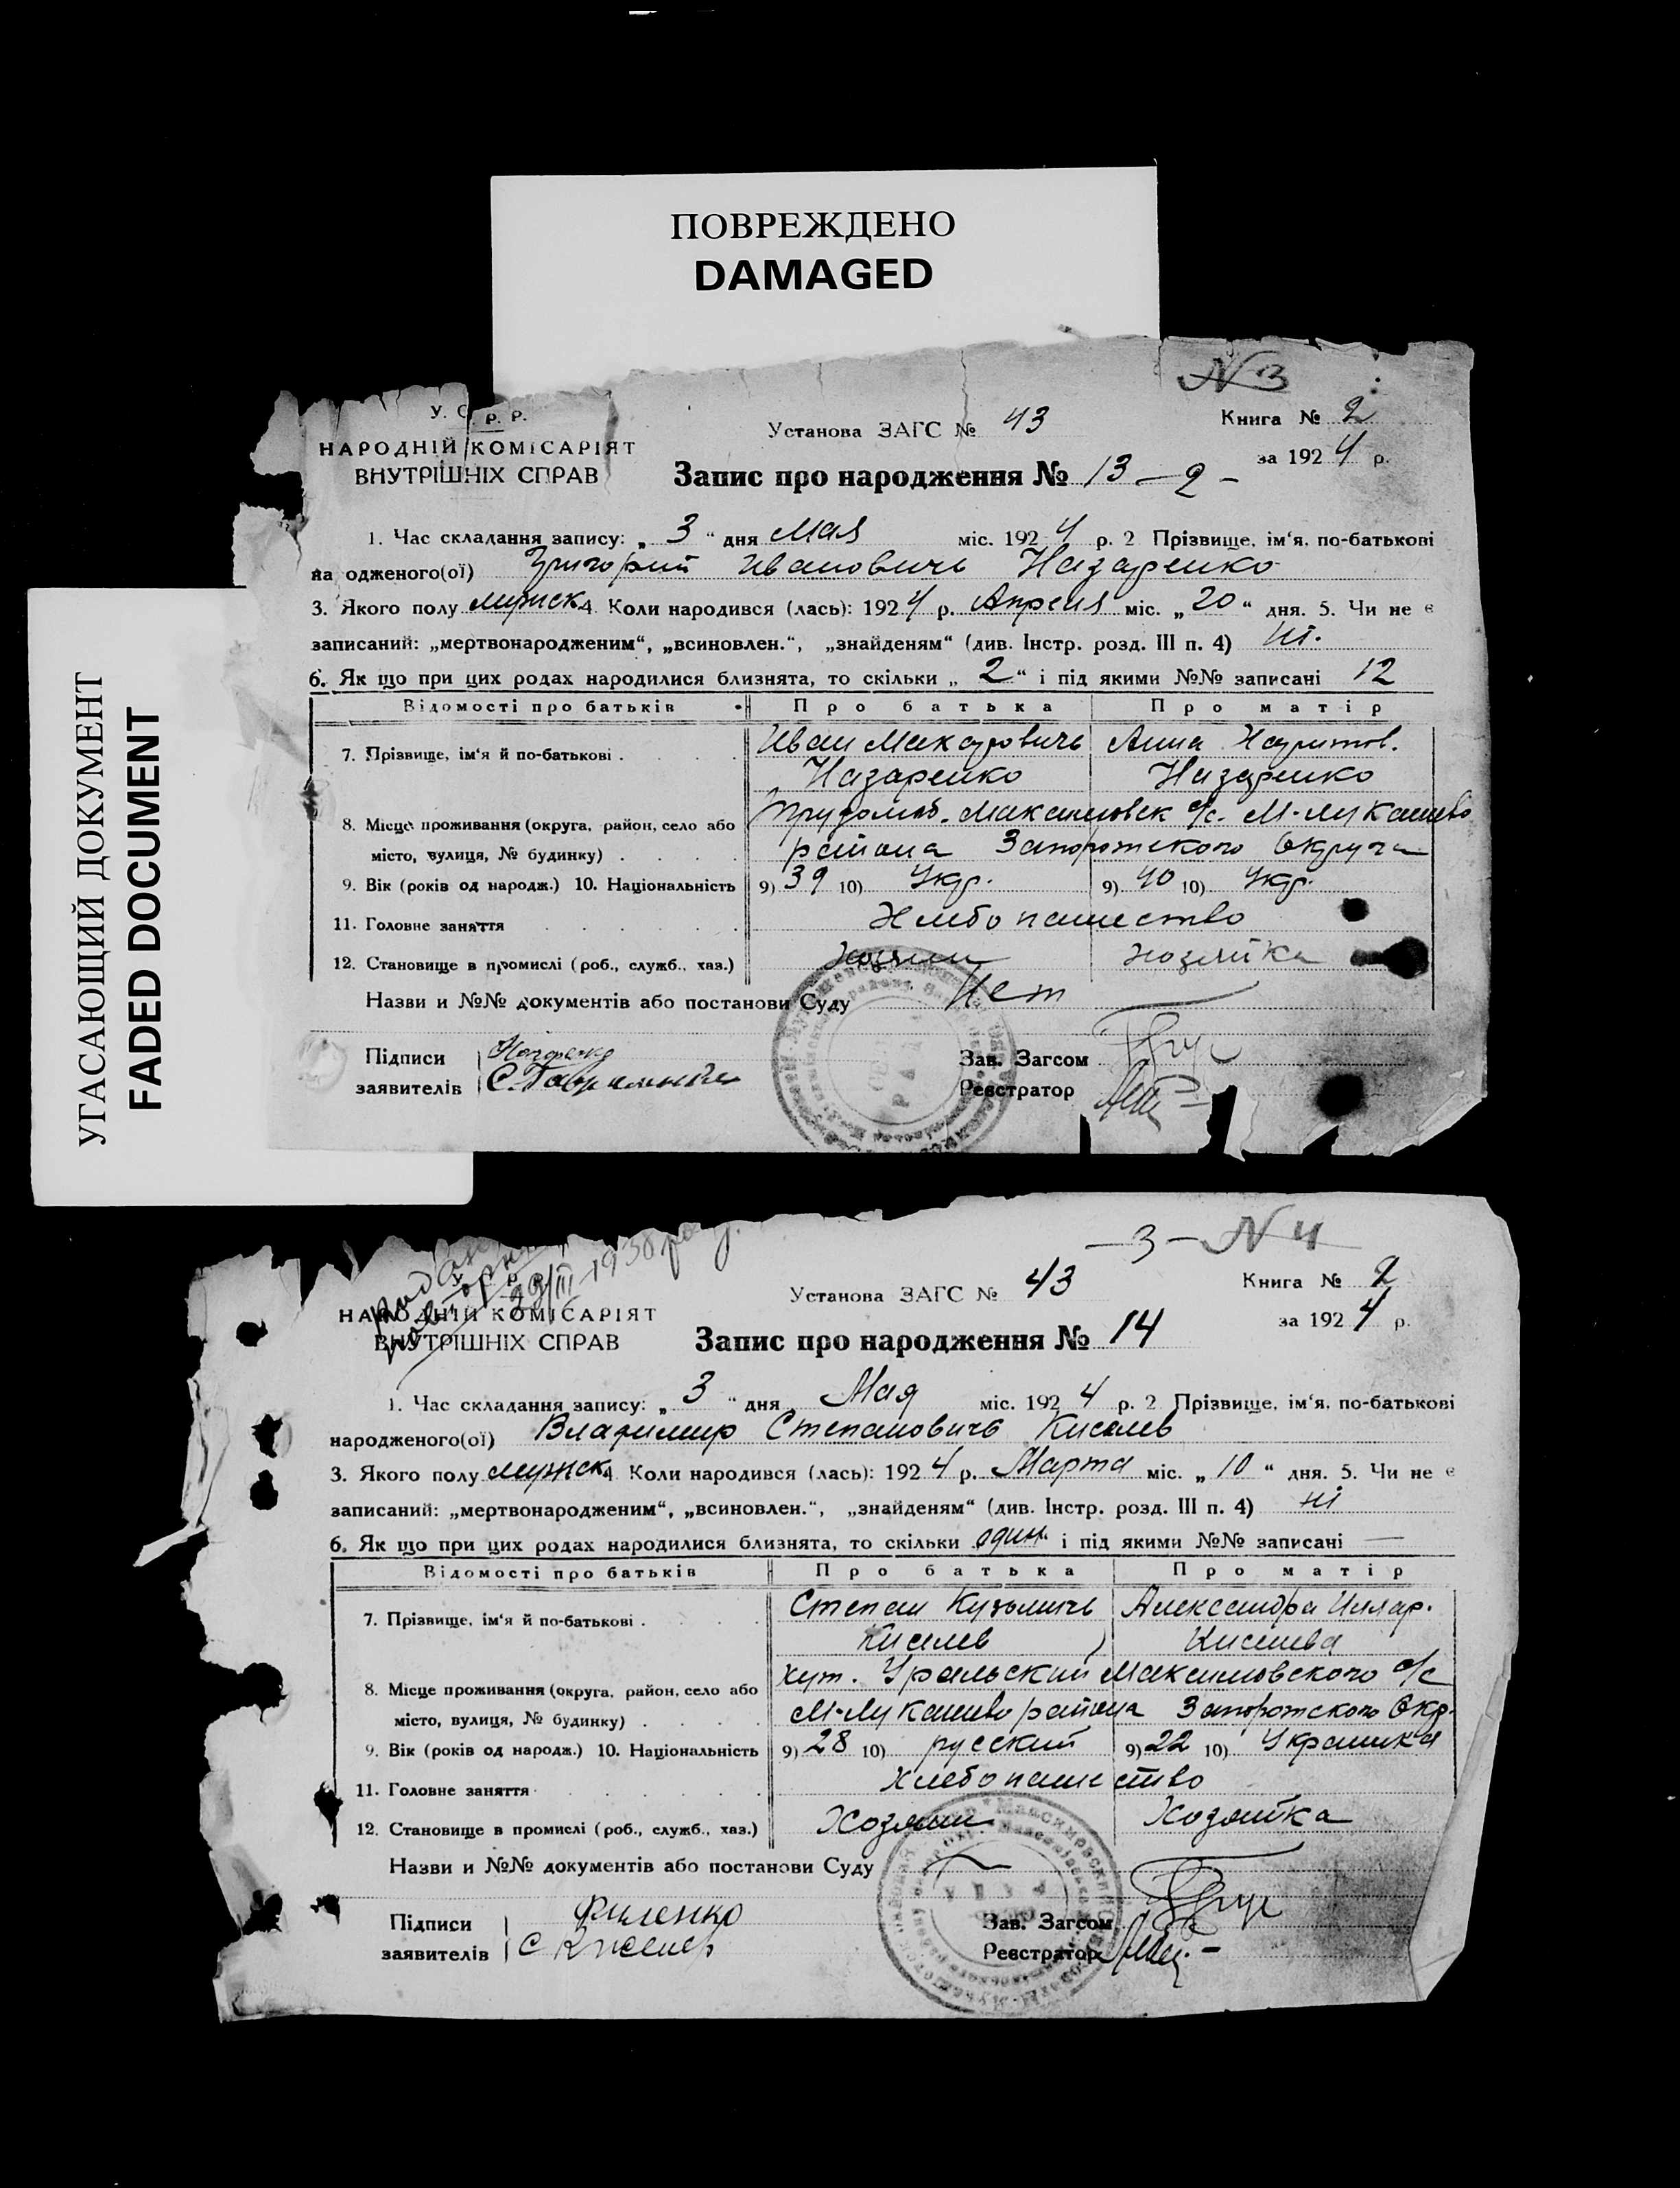 ПОВРЕЖДЕНО
DAMAGED
УГАСАЮЩИЙ ДОКУМЕНТ
FADED DOCUMENT
№ 3
У. С. Р. Р.
НАРОДНІЙ КОМІСАРІЯТ
ВНУТРІШНІХ СПРАВ
Установа ЗАГС № 43
Книга № 2
за 1924 р.
Запис про народження № 13 – 2 –
1. Час складання запису: „ 3 “ дня Мая міс. 1924 р. 2 Прізвище, ім‘я, по-батькові
на одженого(ої) Григорий Ивановичь Назаренко
3. Якого полу мужск 4 Коли народився (лась): 1924 р. Апреля міс. „ 20 “ дня. 5. Чи не є
записаний: „мертвонародженим“, „всиновлен.“, „знайденям“ (див. Інстр. розд. III п. 4) ні.
6. Як що при цих родах народилися близнята, то скільки „ 2 “ і під якими №№ записані 12
Відомості про батьків Про батька Про матір
7. Прізвище, ім‘я й по-батькові . Иван Макаровичь Анна
Назаренко Назаренко
8. Місце проживання (округа, район, село або Максимовск с/с. М-Лукашево
місто, вулиця, № будинку) . района Запорожского Округа
9. Вік (років од народж.) 10. Національність 9) 39 10) Укр. 9) 40 10) Укр.
11. Головне заняття Хлебопашество
12. Становище в промислі (роб., служб., хаз.) Хозяин хозяйка
Назви и №№ документів або постанови Суду Нет
Підписи
заявителів С.
Зав. Загсом
Реєстратор
– 3 – № 4
23/III – 1938
НАРОДНІЙ КОМІСАРІЯТ
ВНУТРІШНІХ СПРАВ
Установа ЗАГС № 43
Книга № 2
за 1924 р.
Запис про народження № 14
1. Час складання запису: „ 3 “ дня Мая міс. 1924 р. 2 Прізвище, ім‘я, по-батькові
народженого(ої) Владимир Степановичь Киселев
3. Якого полу мужск 4 Коли народився (лась): 1924 р. Марта міс. „ 10 “ дня. 5. Чи не є
записаний: „мертвонародженим“, „всиновлен.“, „знайденям“ (див. Інстр. розд. III п. 4) ні
6. Як що при цих родах народилися близнята, то скільки один і під якими №№ записані —
Відомості про батьків Про батька Про матір
7. Прізвище, ім‘я й по-батькові . Степан Кузьмичь Александра Иллар.
Киселев Киселева
8. Місце проживання (округа, район, село або хут. Уральский Максимовского с/с
місто, вулиця, № будинку) . М-Лукашево района Запорожского Окр.
9. Вік (років од народж.) 10. Національність 9) 28 10) русский 9) 22 10) Украинка
11. Головне заняття Хлебопашество
12. Становище в промислі (роб., служб., хаз.) Хозяин Хозяйка
Назви и №№ документів або постанови Суду
Підписи Филенко
заявителів С Киселев
Зав. Загсом
Реєстратор